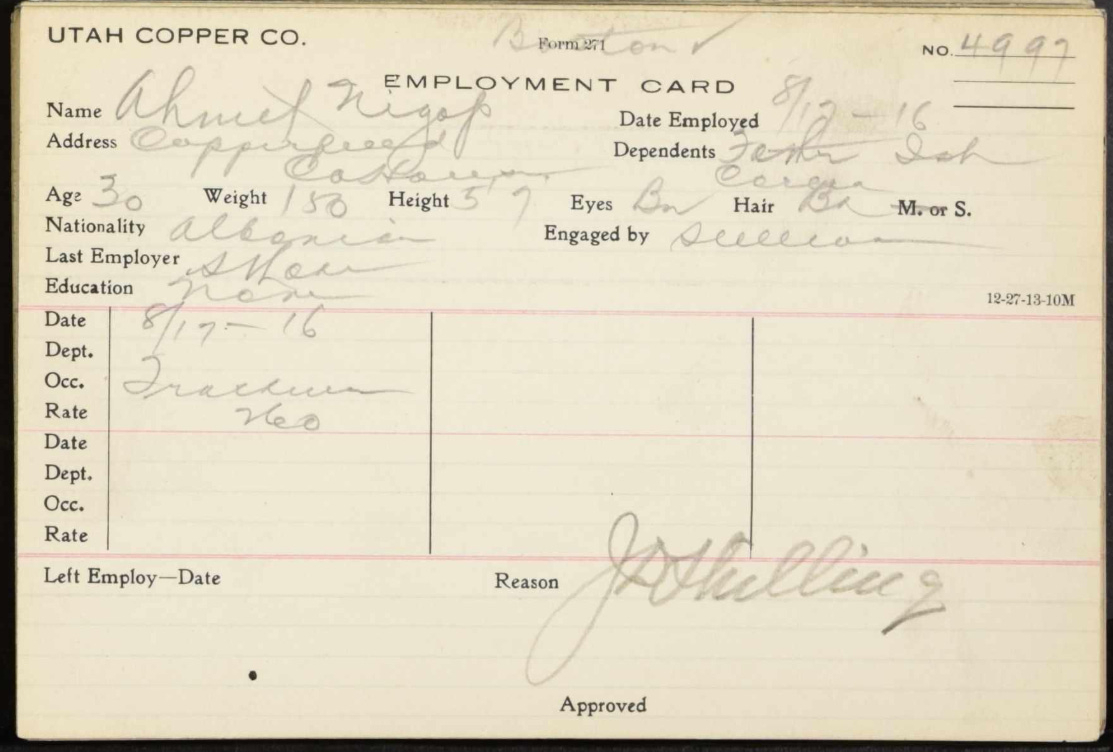 UTAH COPPER CO. Form 271 NO. 4997
EMPLOYMENT CARD
Name Ahmet Date Employed 8/17-16
Address Copperfield Dependents Father
Age 30 Weight 150 Height 5 7 Eyes Bn Hair Bn M. or S.
Nationality Albanian Engaged by Sullivan
Last Employer
Education None
12-27-13-10M
Date 8/17-16
Dept.
Occ. Trackman
Rate
Date
Dept.
Occ.
Rate
Left Employ—Date Reason J D Shilling
Approved